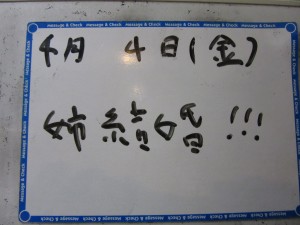 Message & Check Message & Check Message & Check Message & Check
4月 4日(金)
姉結婚!!!
Message & Check Message & Check Message & Check Message & Check